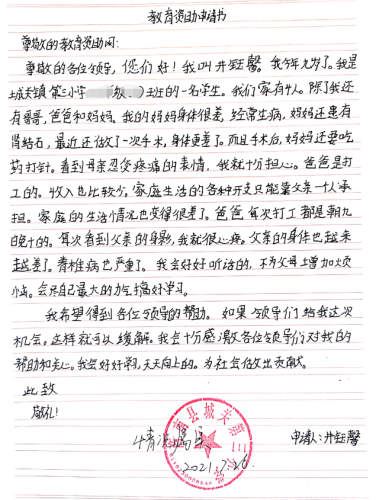 教育资助申请书
尊敬的教育资助间:
尊敬的各位领导,您们好!我叫井钰馨。我今年九岁了。我是
城关镇第三小学 班的一名学生。我们家有4人。除了我还
有哥哥,爸爸和妈妈。我的妈妈身体很差,经常生病,妈妈还患有
肾结石,最近还做了一次手术,身体更差了。而且手术后,妈妈还要吃
药打针。看到母亲忍受疼痛的表情,我就十分担心。爸爸是打
工的。收入也比较少。家庭生活的各种开支只能量父亲一人承
担。家庭的生活情况也变得很差了。爸爸每次打工都是朝九
晚十的。每次看到父亲的身影,我就很心疼。父亲的身体也越来
越差了。脊椎病也严重了。我会好好听话的,不为父母增加烦
恼。会尽自己最大的力气搞好学习。
我希望得到各位领导的帮助。如果领导们给我这次
机会。这样就可以缓解。我会十分感激各位领导们对我的
帮助和关心。我会好好学习,天天向上的。为社会做出贡献。
此致
敬礼!
情况属
县城关第三
申请人:井钰馨
2021. .26